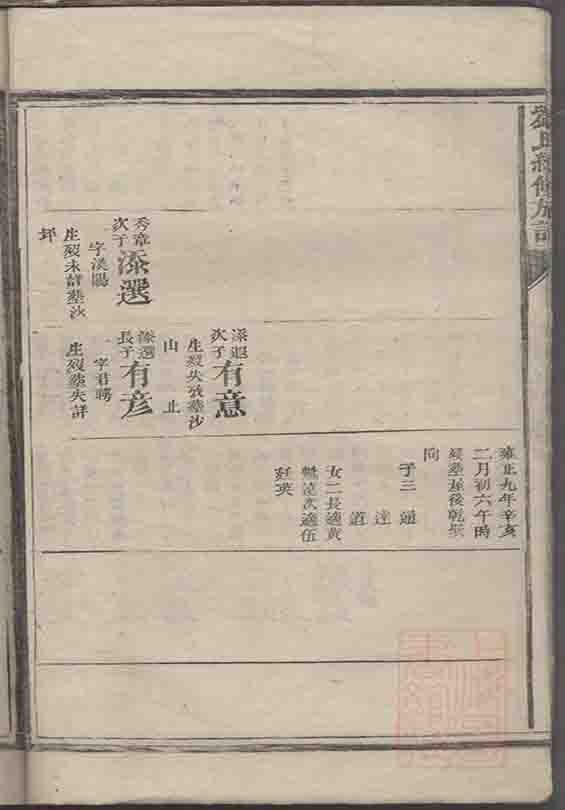 劉氏續修族譜
雍正九年辛亥
二月初六午時
歿塟屋後乾巽
向
子三 通
達
道
女二長適黄
毓逵次適伍
廷英
添選
次子
有意
生歿失攷塟沙
山止
添選
長子
有彥
字君聘
生歿塟失詳
秀章
次子
添選
字漢陽
生歿未詳塟沙
坪